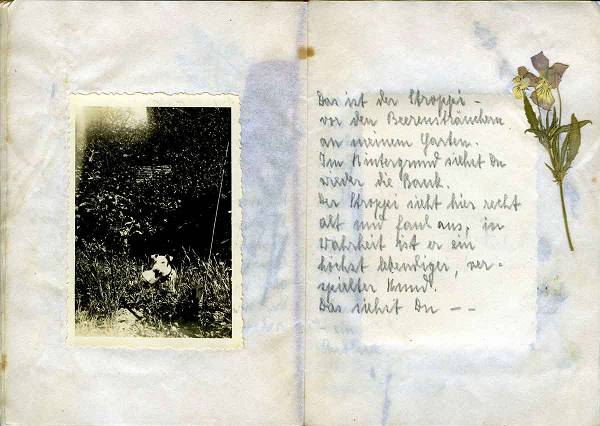 Das ist der Stroppi –
vor den Beerensträuchern
an meinem Garten.
Im Hintergrund siehst Du
wieder die Bank.
Der Stroppi sieht hier recht
alt und faul aus, in
Wahrheit ist er ein
höchst lebendiger, ver-
spielter Hund.
Das siehst Du – –